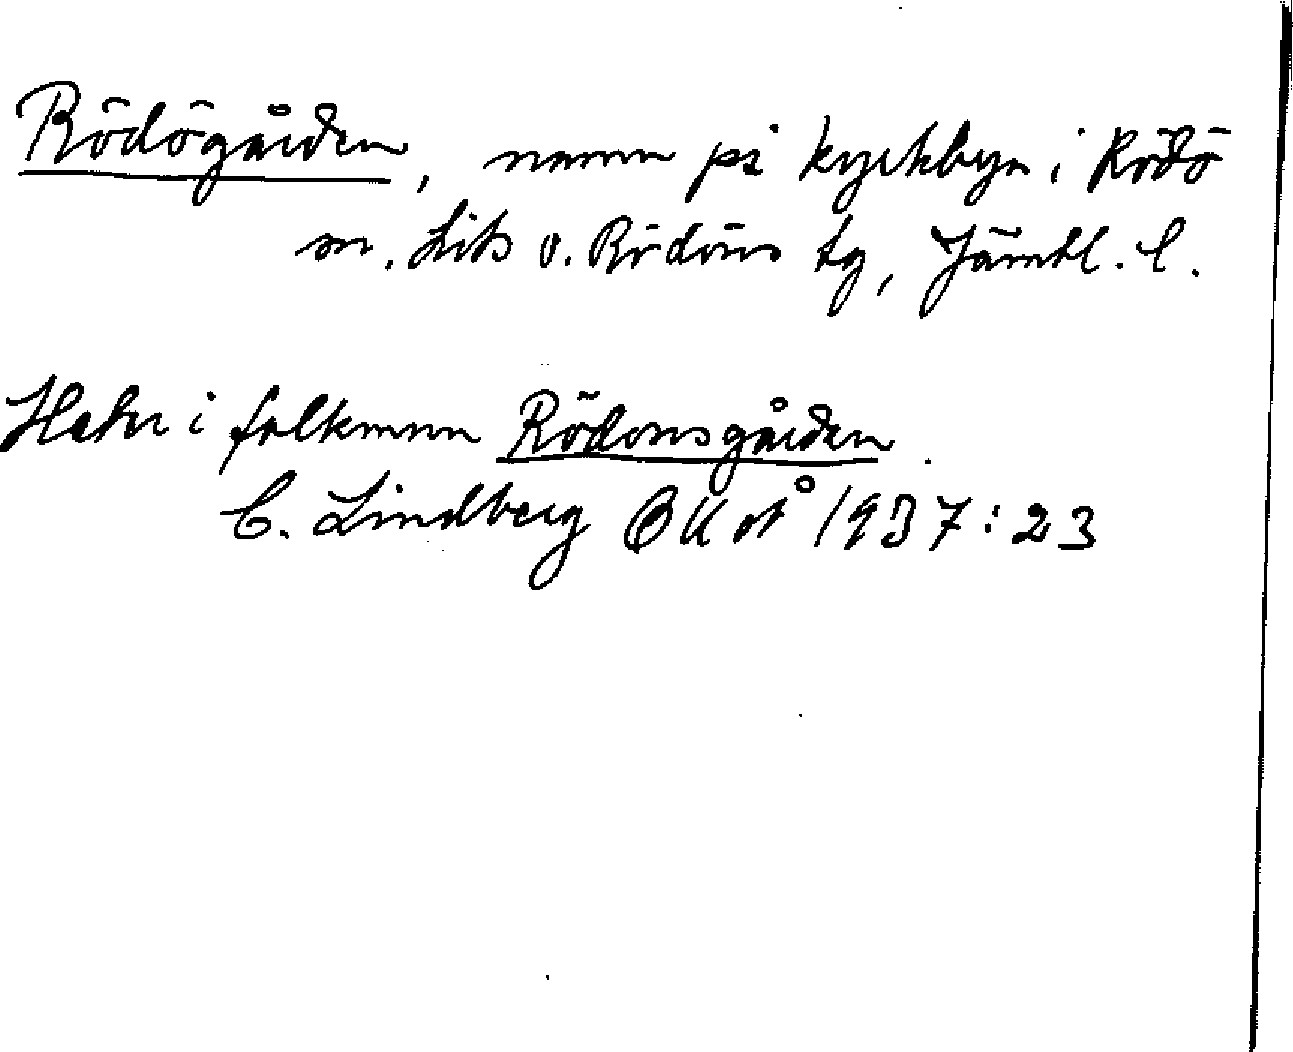 Rödögården, namn på kyrkbyn i Rödö
sn. Lits o. Rödöns tg, Jämtl. l.
Heter i folkmun Rödönsgården.
C. Lindberg 1937:23